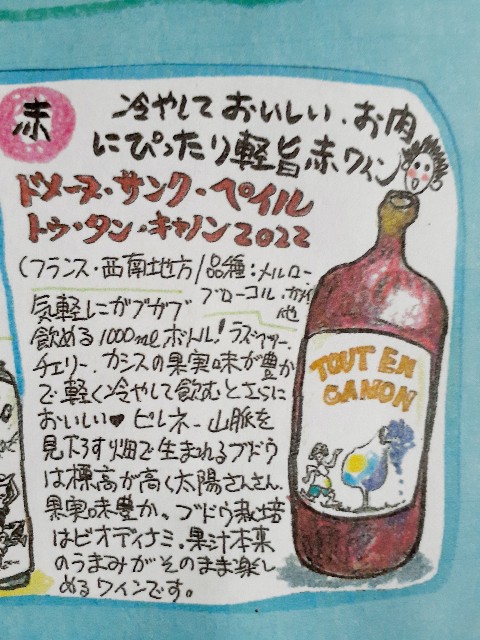 赤
冷やしておいしい、お肉
にぴったり軽旨赤ワイン
ドメーヌ・サンク・ペイル
トゥ・タン・キャノン2022
(フランス・西南地方/品種:メルロー
ブローコル・
他
気軽にガブガブ
飲める1000mlボトル!ラズベリー、
チェリー、カシスの果実味が豊か
で軽く冷やして飲むとさらに
おいしい♥ピレネー山脈を
見下ろす畑で生まれるブドウ
は標高が高く太陽さんさん、
果実味豊か。ブドウ栽培
はビオディナミ。果汁本来
のうまみがそのまま楽し
めるワインです。
TOUT EN
CANON